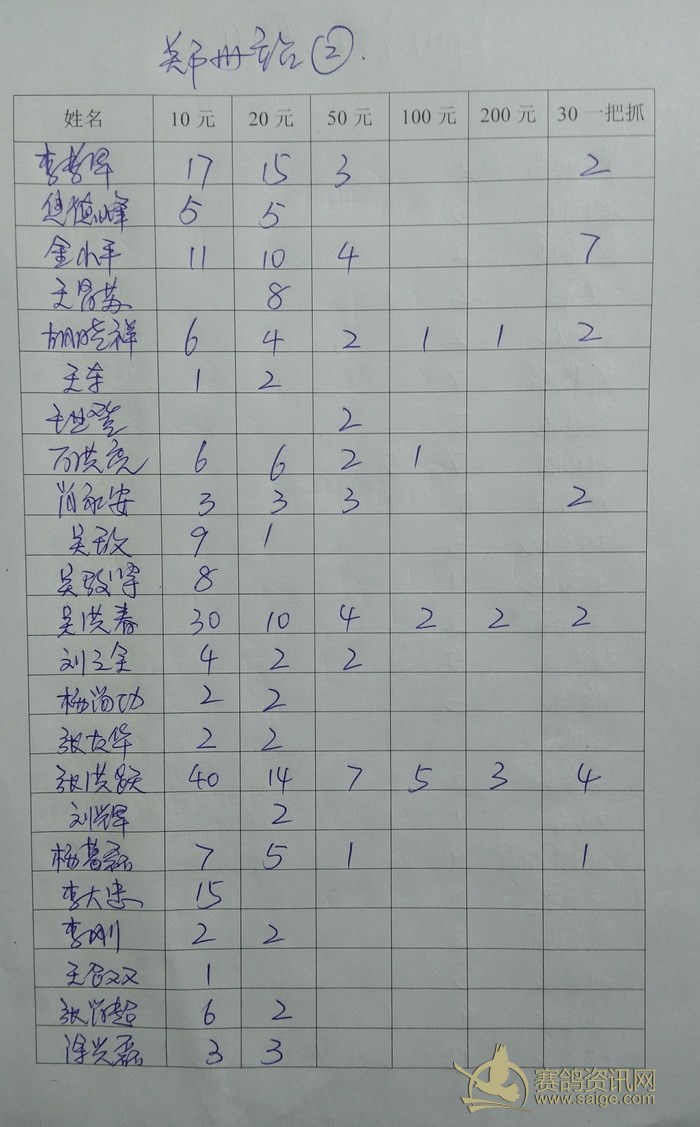 郑册站②.
姓名 10元 20元 50元 100元 200元 30一把抓
17 15 3 2
5 5
金小平 11 10 4 7
王昌苏 8
胡晓祥 6 4 2 1 1 2
王车 1 2
2
6 6 2 1
肖永安 3 3 3 2
吴敌 9 1
8
吴洪春 30 10 4 2 2 2
刘立全 4 2 2
杨尚功 2 2
张友华 2 2
张洪跃 40 14 7 5 3 4
刘辉 2
7 5 1 1
李大忠 15
李刚 2 2
1
张尚超 6 2
涂兴磊 3 3
赛鸽资讯网
www.saige.com